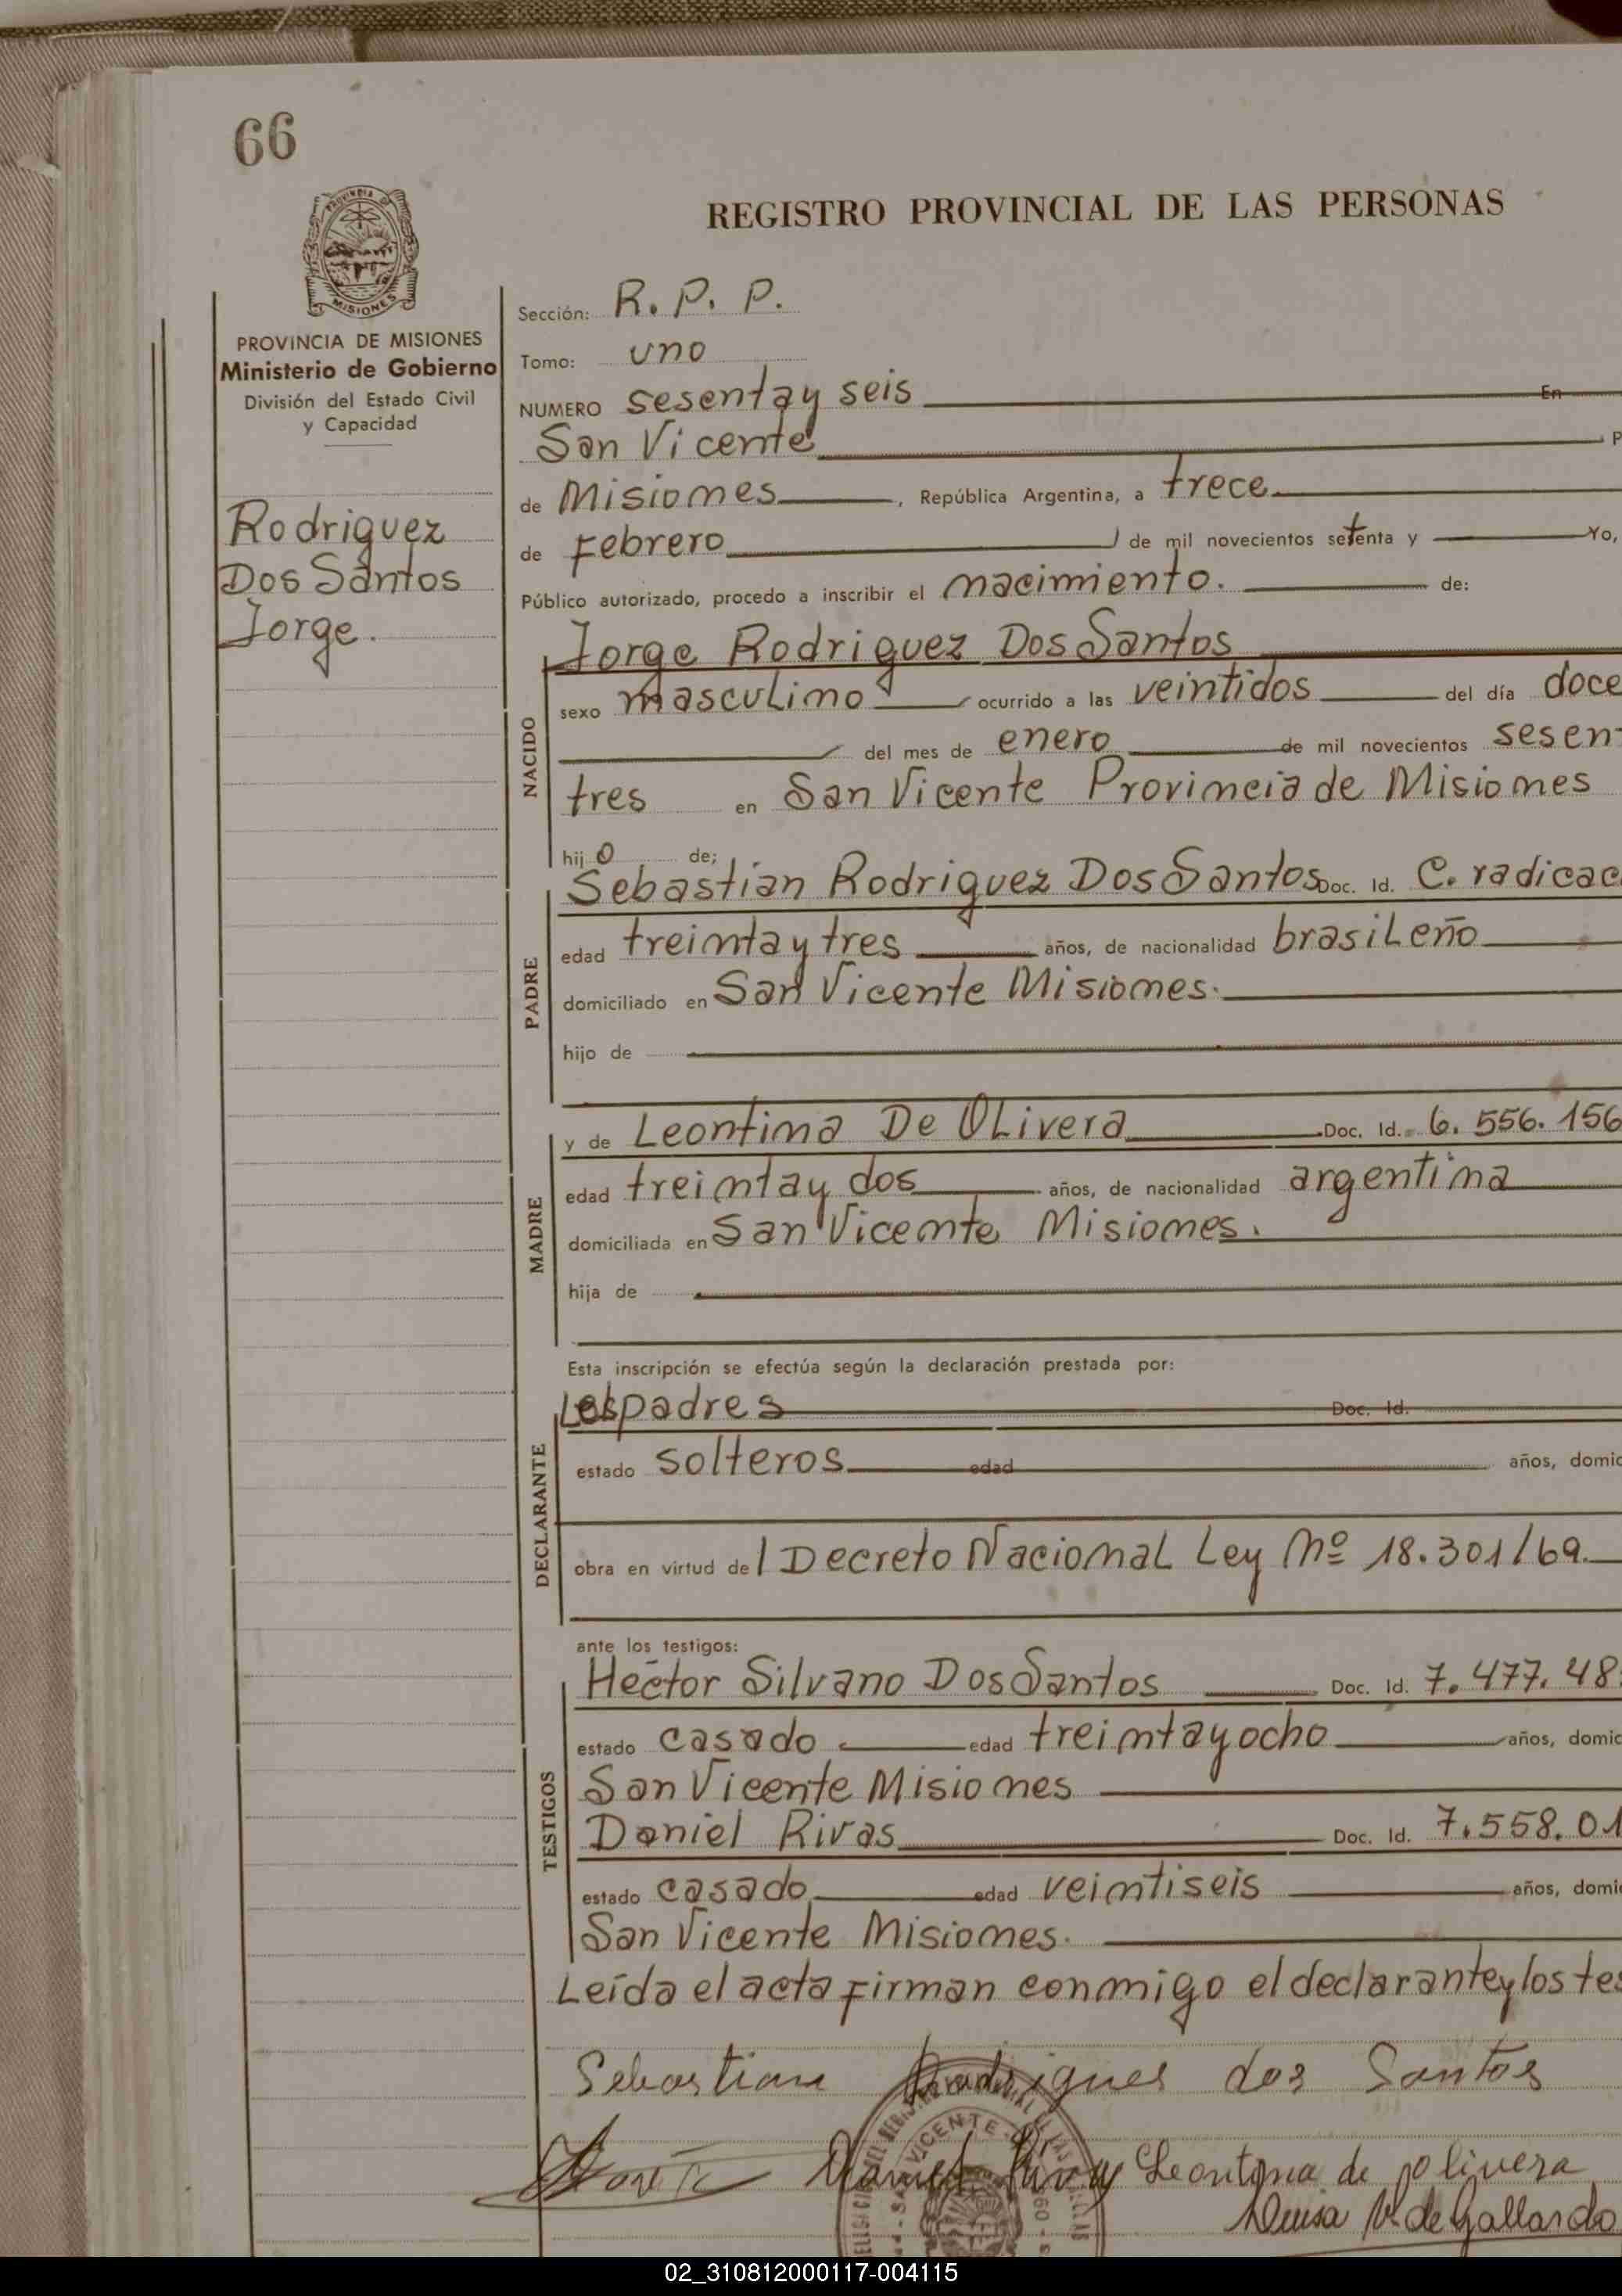 66
PROVINCIA DE
MISIONES
REGISTRO PROVINCIAL DE LAS PERSONAS
PROVINCIA DE MISIONES
Ministerio de Gobierno
División del Estado Civil
y Capacidad
Rodriguez
Dos Santos
Jorge.
Sección: R. P. P.
Tomo: uno
NUMERO sesenta y seis En
San Vicente P
de Misiones, República Argentina, a trece
de Febrero de mil novecientos setenta y Yo,
Público autorizado, procedo a inscribir el nacimiento. de:
NACIDO
Jorge Rodriguez Dos Santos
sexo masculino ocurrido a las veintidos del día doce
del mes de enero de mil novecientos sesen
tres en San Vicente Provincia de Misiones
hijo de;
PADRE
Sebastian Rodriguez Dos Santos Doc. Id. C. radicac
edad treinta y tres años, de nacionalidad brasileño
domiciliado en San Vicente Misiones.
hijo de
MADRE
y de Leontina De Olivera Doc. Id. 6.556.156
edad treinta y dos años, de nacionalidad argentina
domiciliada en San Vicente Misiones.
hija de
Esta inscripción se efectúa según la declaración prestada por:
DECLARANTE
Los padres Doc. Id.
estado solteros edad años, domic
obra en virtud del Decreto Nacional Ley Nº 18.301/69.
ante los testigos:
TESTIGOS
Hector Silvano Dos Santos Doc. Id. 7.477.48
estado casado edad treinta y ocho años, domic
San Vicente Misiones
Daniel Rivas Doc. Id. 7.558.01
estado casado edad veintiseis años, domi
San Vicente Misiones.
Leída el acta firman conmigo el declarante y los tes
Sebastian Rodrigues dos Santos
Daniel Rivas Leontina de Olivera
Luisa V. de Gallardo
02_310812000117-004115